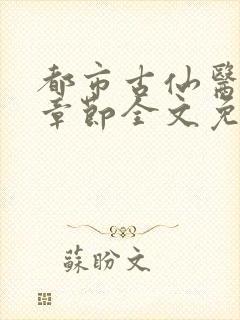 都市古仙醫
章節全文免
蘇盼文